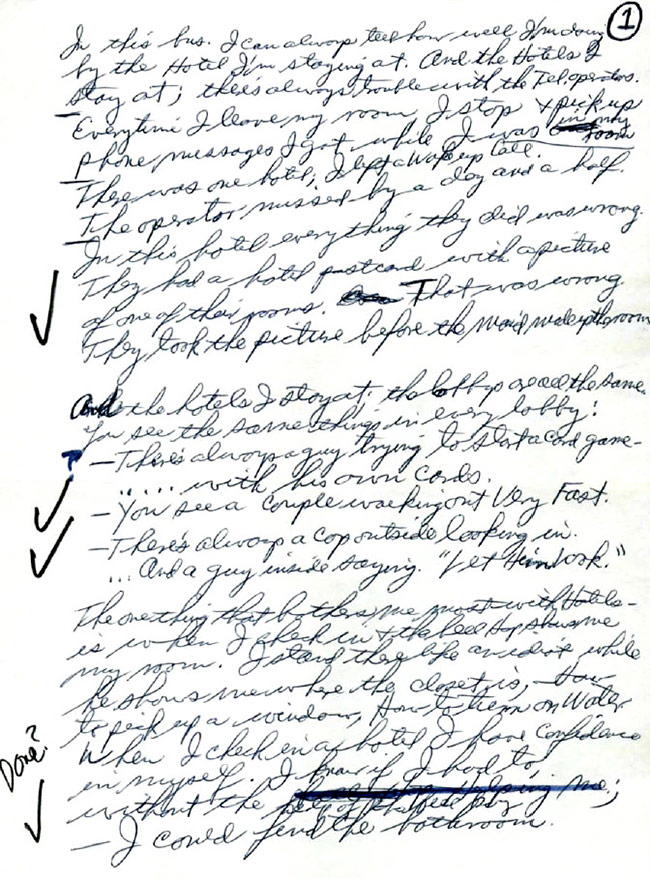 1
In this bus. I can always tell how well I'm doing
by the Hotel I'm staying at. And the Hotels I
stay at; there's always trouble with the Tel. operators.
— Everytime I leave my room I stop & pick up
phone messages I got while I was in my room
— There was one hotel; I left a Wake up Call.
The operator missed by a day and a half.
— In this hotel everything they did was wrong.
They had a hotel postcard with a picture
of one of their rooms. That was wrong.
They took the picture before the maid made up the room
And the hotels I stay at; the lobbys are all the same.
You see the same things in every lobby:
— There's always a guy trying to start a card game -
..... with his own Cards.
— You see a Couple walking out Very Fast.
— There's always a cop outside looking in.
... And a guy inside saying. "Let Him look."
The one thing that bothers me most with Hotels -
is when I check in & the bell Hop shows me
my room. I stand there like an idiot while
he shows me where the closet is, How
to pick up a window, How to turn on Water
When I check in a hotel I have Confidence
Done?
in myself. I know if I had to,
without the help of the bell boy
— I could find the bathroom.